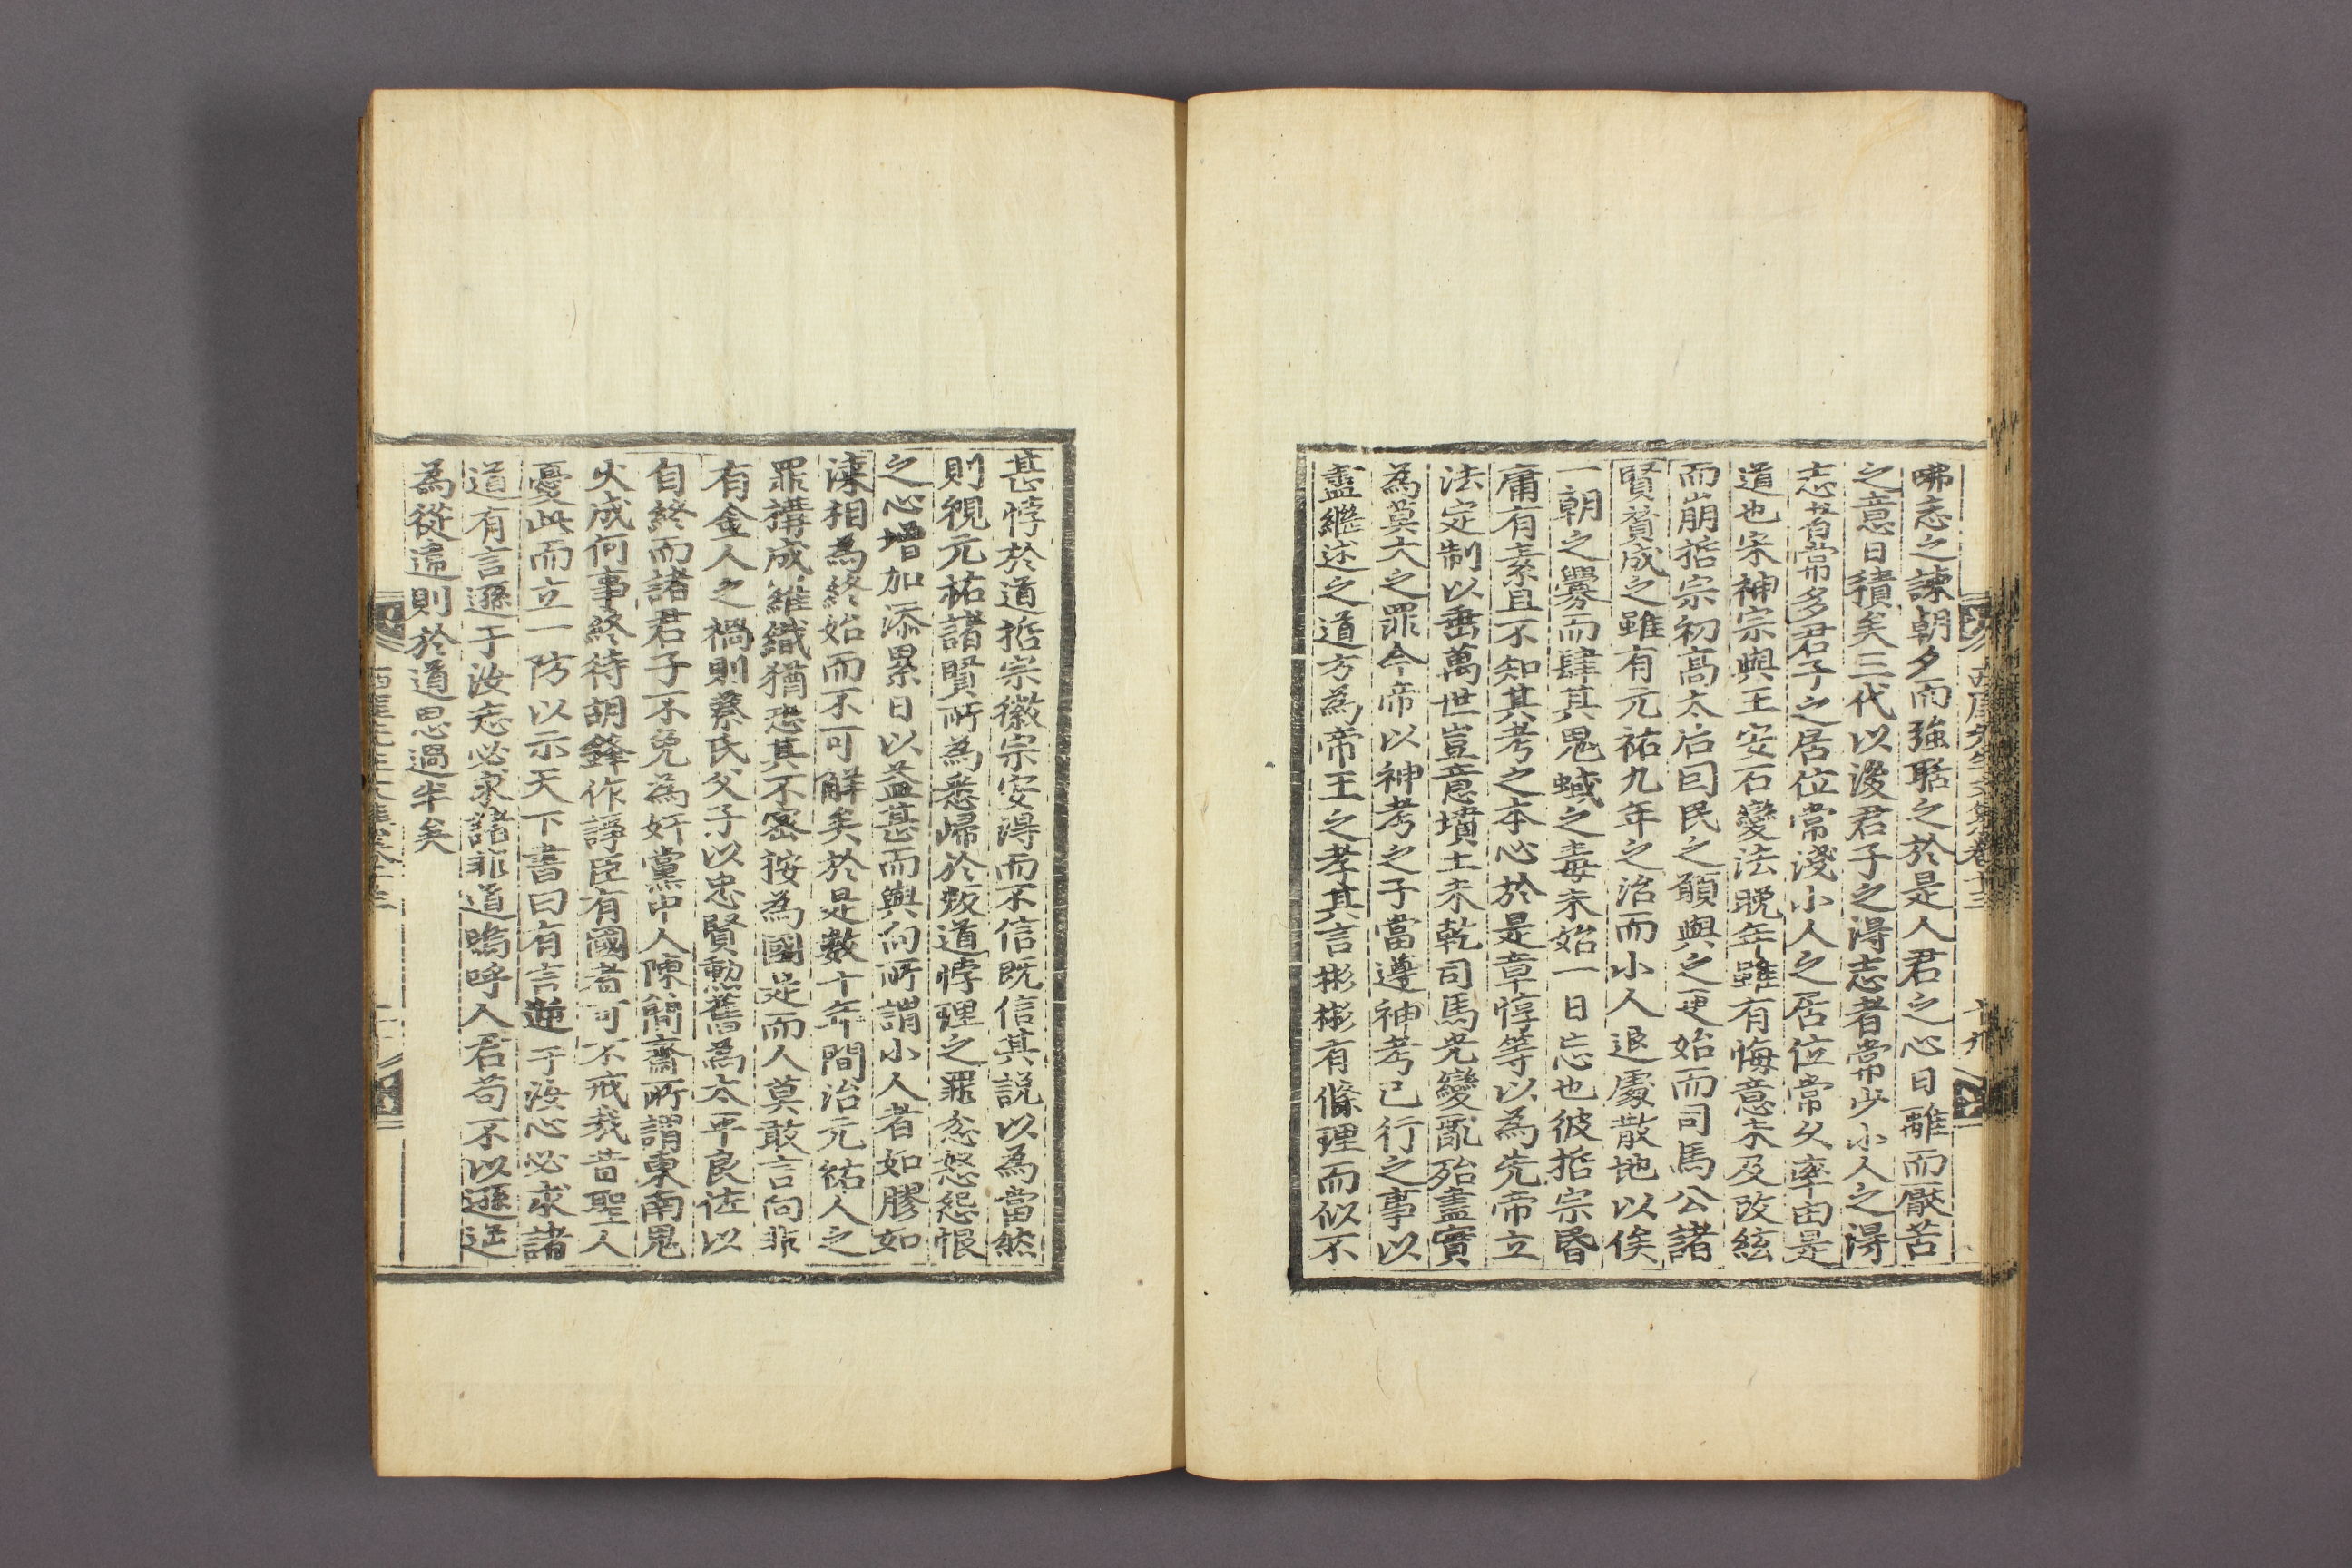 西厓先生文集卷十三 十九
咈志之諫朝夕而強聒之於是人君之心日離而厭苦
之意日積矣三代以後君子之得志者常少小人之得
志者常多君子之居位常淺小人之居位常久率由是
道也宋神宗與王安石變法晚年雖有悔意未及改絃
而崩哲宗初高太后因民之願與之更始而司馬公諸
賢贊成之雖有元祐九年之治而小人退處散地以俟
一朝之釁而肆其鬼蜮之毒未始一日忘也彼哲宗昏
庸有素且不知其考之本心於是章惇等以為先帝立
法定制以垂萬世豈意墳土未乾司馬光變亂殆盡實
為莫大之罪今帝以神考之子當遵神考已行之事以
盡繼述之道方為帝王之孝其言彬彬有條理而似不
甚悖於道哲宗徽宗安得而不信既信其説以為當然
則視元祐諸賢所為悉歸於叛道悖理之罪忿怒怨恨
之心增加添累日以益甚而與向所謂小人者如膠如
漆相為終始而不可解矣於是數十年間治元祐人之
罪構成羅織猶恐其不密按為國是而人莫敢言向非
有金人之禍則蔡氏父子以忠賢勳舊為太平良佐以
自終而諸君子不免為奸黨中人陳簡齋所謂東南鬼
火成何事終待胡鋒作諍臣有國者可不戒哉昔聖人
憂此而立一防以示天下書曰有言逆于汝心必求諸
道有言遜于汝志必求諸非道嗚呼人君苟不以遜逆
為從違則於道思過半矣
西厓先生文集卷十三 二十